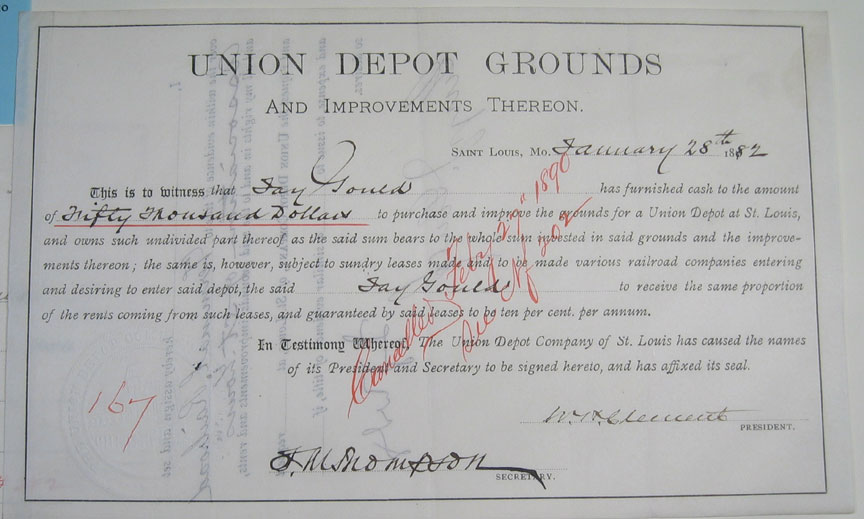 UNION DEPOT GROUNDS
AND IMPROVEMENTS THEREON.
SAINT LOUIS, MO. January 28th 1882
This is to witness that Jay Gould has furnished cash to the amount
of Fifty Thousand Dollars to purchase and improve the grounds for a Union Depot at St. Louis,
and owns such undivided part thereof as the said sum bears to the whole sum invested in said grounds and the improve-
ments thereon; the same is, however, subject to sundry leases made and to be made various railroad companies entering
and desiring to enter said depot, the said Jay Gould to receive the same proportion
of the rents coming from such leases, and guaranteed by said leases to be ten per cent. per annum.
In Testimony Whereof, The Union Depot Company of St. Louis has caused the names
of its President and Secretary to be signed hereto, and has affixed its seal.
Cancelled Feby 1890
See No 202
167
W. H. Clement
PRESIDENT.
J. M. Thompson
SECRETARY.